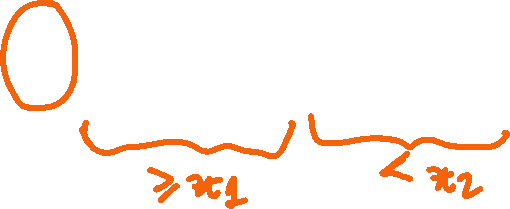 ≥ x1 < x2